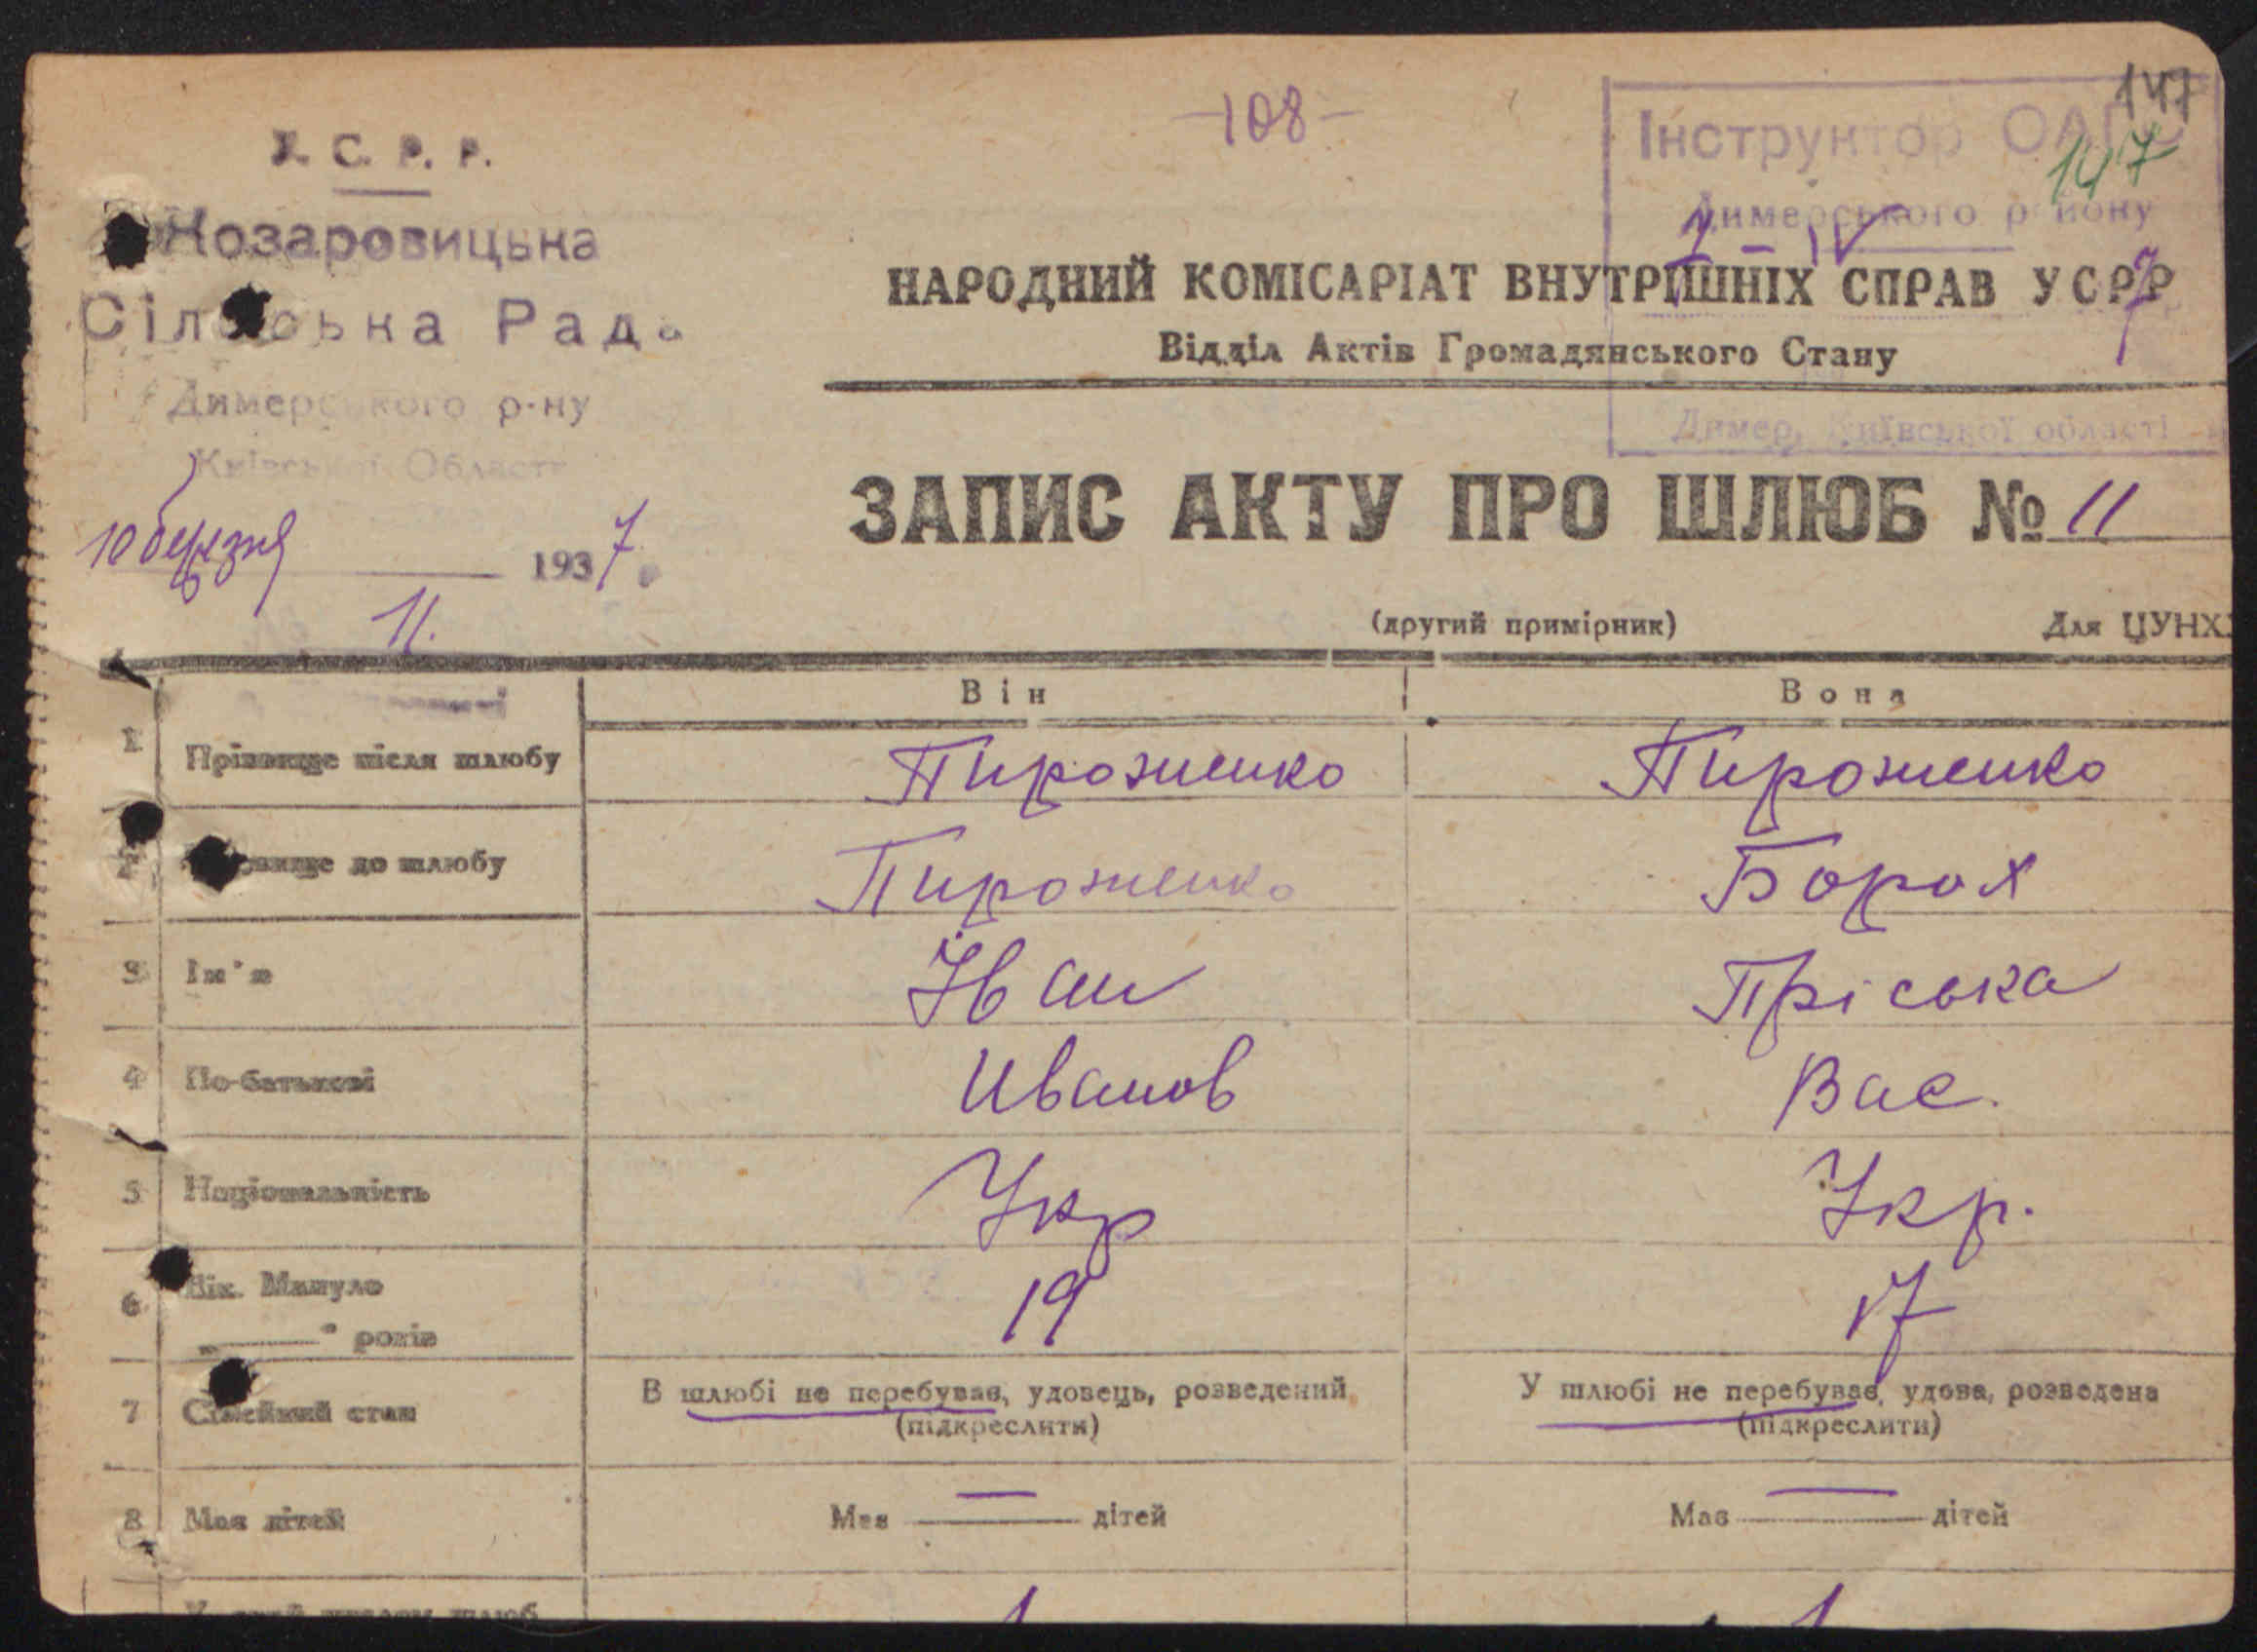 У. С. Р. Р.
Козаровицька
Сільська Рада
Димерського р-ну
Київської Області
10 березня 1937
11.
-108-
147
147
Інструктор ОАГС
Димерського району
7 - IV
7
НАРОДНИЙ КОМІСАРІАТ ВНУТРІШНІХ СПРАВ УСРР
Відділ Актів Громадянського Стану
Димер, Київської області
ЗАПИС АКТУ ПРО ШЛЮБ № 11
(другий примірник) Для ЦУНХ
Він Вона
1 Прізвище після шлюбу Пироженко Пироженко
2 Прізвище до шлюбу Пироженко Борох
3 Ім'я Іван Пріська
4 По-батькові Иванов Вас.
5 Національність Укр Укр.
6 Вік. Минуло
" років 19 17
7 Сімейний стан В шлюбі не перебував, удовець, розведений У шлюбі не перебував, удова, розведена
(підкреслити) (підкреслити)
8 Має дітей Має — дітей Має — дітей
шлюб
1 1